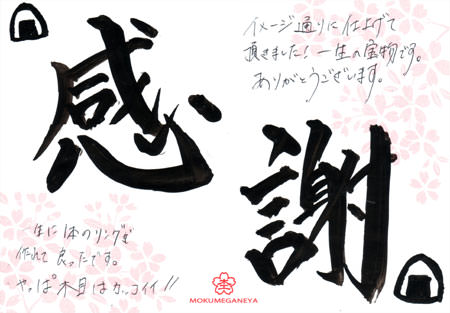 感
謝。
イメージ通りに仕上げて
頂きました！一生の宝物です。
ありがとうございます。
一生に1本のリングを
作れて良ったです。
やっぱ木目はカッコイイ!!
MOKUMEGANEYA